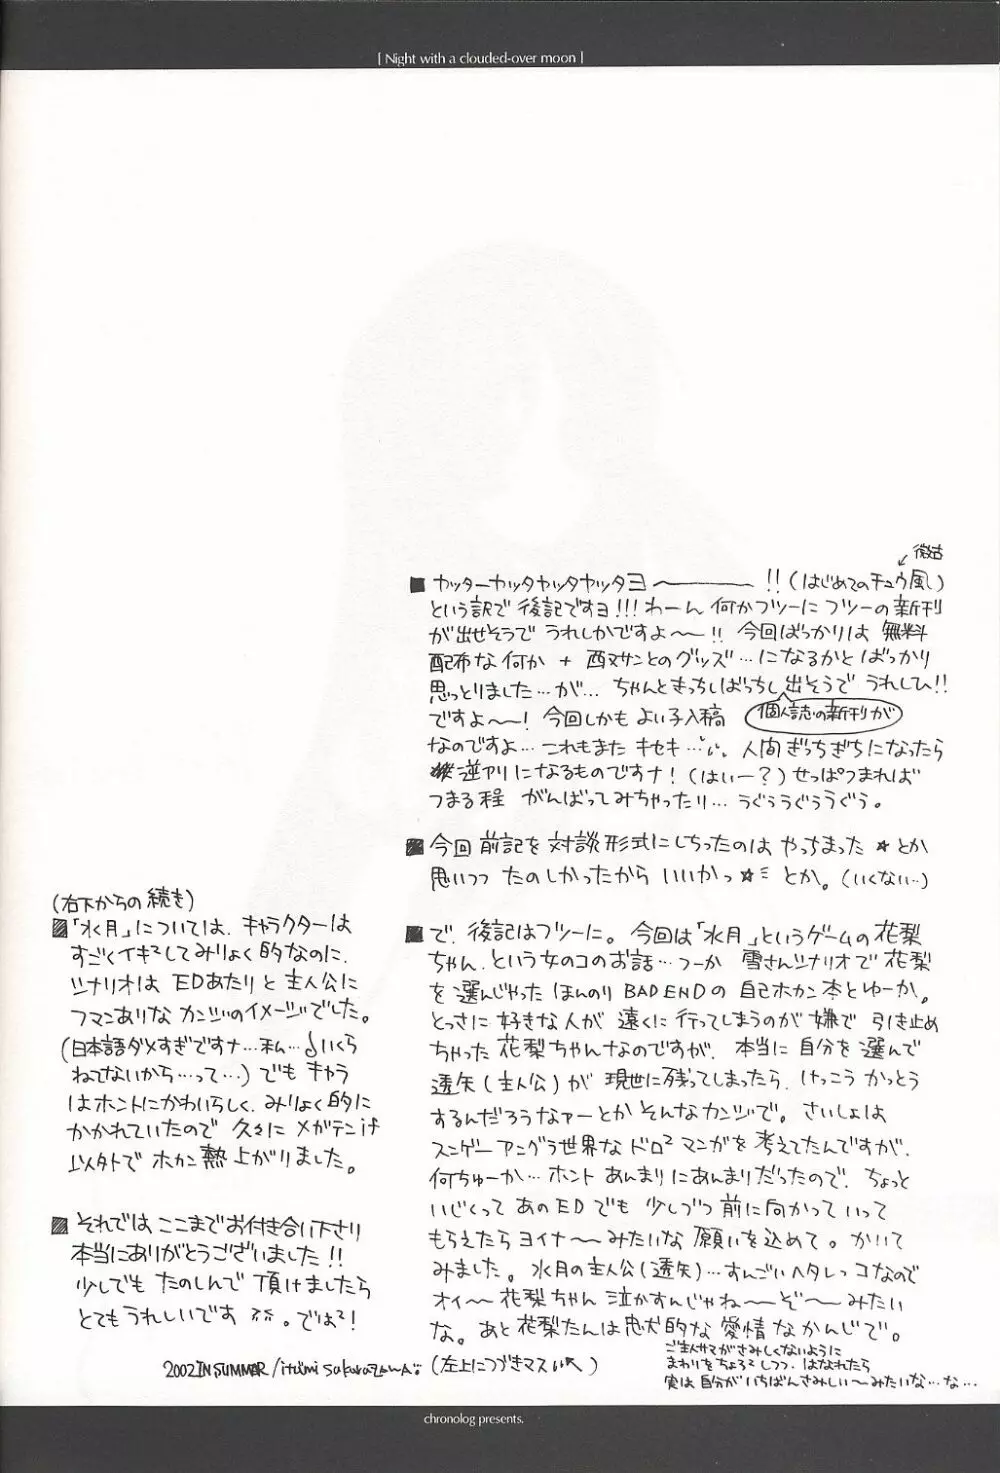 [ Night with a clouded-over moon ]
微古
■ ヤッターヤッタヤッタヤッタヨ────!!(はじめてのチュウ風)
という訳で 後記ですヨ!!! わーん 何かフツーに フツーの新刊
が出せそうで うれしかですよ〜〜!! 今回ばっかりは 無料
配布な何か + 酉又サンとのグッズ…になるかと ばっかり
思っとりました…が… ちゃんときっちしばっちし出そうで うれしひ!!
ですよ〜〜! 今回しかも よい子入稿 個人誌の新刊が
なのですよ… これもまた キセキ… 人間 ぎっちぎちになったら
逆アリになるものですナ! (はいー?) せっぱつまれば
つまる程 がんばってみちゃったり… うぐぅうぐぅうぐぅ。
■ 今回 前記を 対談形式にしちったのは やっちまった☆とか
思いつつ たのしかったから いいかっ☆ミ とか。(いくない…)
■ で、後記はフツーに。今回は「水月」というゲームの花梨
ちゃん、という女のコのお話…つーか 雪さんシナリオで 花梨
を選んじゃった ほんのり BAD ENDの 自己ホカン本とゆーか。
とっさに 好きな人が 遠くに行ってしまうのが 嫌で 引き止め
ちゃった 花梨ちゃんなのですが、本当に 自分を選んで
透矢(主人公)が 現世に残ってしまったら、けっこう かっとう
するんだろうなァーとか そんなカンジで。さいしょは
スンゲーアングラ世界な ドロ²マンガを 考えてたんですが、
何ちゅーか… ホント あんまりにあんまりだったので、ちょっと
いじくって あのEDでも 少しづつ 前に向かって いって
もらえたらヨイナ〜みたいな 願いを込めて。かいて
みました。水月の主人公(透矢)…すんごいヘタレっコなので
オイ〜〜花梨ちゃん 泣かすんじゃね〜〜ぞ〜〜みたい
な。あと 花梨たんは 忠犬的な 愛情なかんじで。
ご主人サマがさみしくないように
まわりをちょろ²しつつ、はなれたら
実は自分がいちばんさみしい〜みたいな…な…
(左上につづきマス)
(右下からの続き)
■「水月」については、キャラクターは
すごくイキ²してみりょく的なのに、
シナリオは EDあたりと 主人公に
フマンありな カンジのイメージでした。
(日本語ダメすぎですナ…私…いくら
ねてないから…って…) でも キャラ
はホントにかわいらしく、みりょく的に
かかれていたので 久々に メガテンif
以外で ホカン熱 上がりました。
■ それでは ここまでお付き合い下さり
本当にありがとうございました!!
少しでも たのしんで 頂けましたら
とてもうれしいです。では²!
2002 IN SUMMER / itumi sakurazawa
chronolog presents.